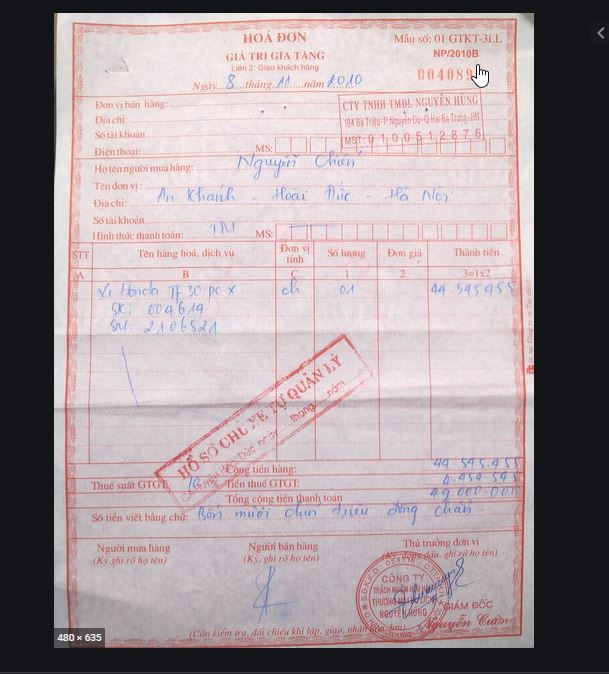 HOÁ ĐƠN
GIÁ TRỊ GIA TĂNG
Liên 2: Giao khách hàng
Ngày 8 tháng 11 năm 2010
Mẫu số: 01 GTKT-3LL
NP/2010B
004089
Đơn vị bán hàng:
Địa chỉ:
Số tài khoản
Điện thoại: MS:
CTY TNHH TMDL NGUYÊN HÙNG
194 Bà Triệu-P.Nguyễn Du-Q.Hai Bà Trưng-HN
MST: 0100512876
Họ tên người mua hàng: Nguyễn Chiến
Tên đơn vị:
Địa chỉ: An Khánh - Hoài Đức - Hà Nội
Số tài khoản
Hình thức thanh toán: TM MS:
STT Tên hàng hoá, dịch vụ Đơn vị tính Số lượng Đơn giá Thành tiền
A B C 1 2 3=1x2
Xe Honda ch 01 44 545 455
SK: 004614
SM: 2106521
HỒ SƠ CHỦ XE TỰ QUẢN LÝ
CA huyện Hoài Đức ngày tháng năm
Cộng tiền hàng: 44.545.455
Thuế suất GTGT: 10 Tiền thuế GTGT: 4.454.545
Tổng cộng tiền thanh toán 49.000.000
Số tiền viết bằng chữ: Bốn mươi chín triệu đồng chẵn
Người mua hàng
(Ký, ghi rõ họ tên)
Người bán hàng
(Ký, ghi rõ họ tên)
Thủ trưởng đơn vị
(Ký, đóng dấu, ghi rõ họ tên)
CÔNG TY
TRÁCH NHIỆM HỮU HẠN
THƯƠNG MẠI DU LỊCH
NGUYÊN HÙNG
GIÁM ĐỐC
Nguyễn Cường
(Cần kiểm tra, đối chiếu khi lập, giao, nhận hóa đơn)
480 × 635